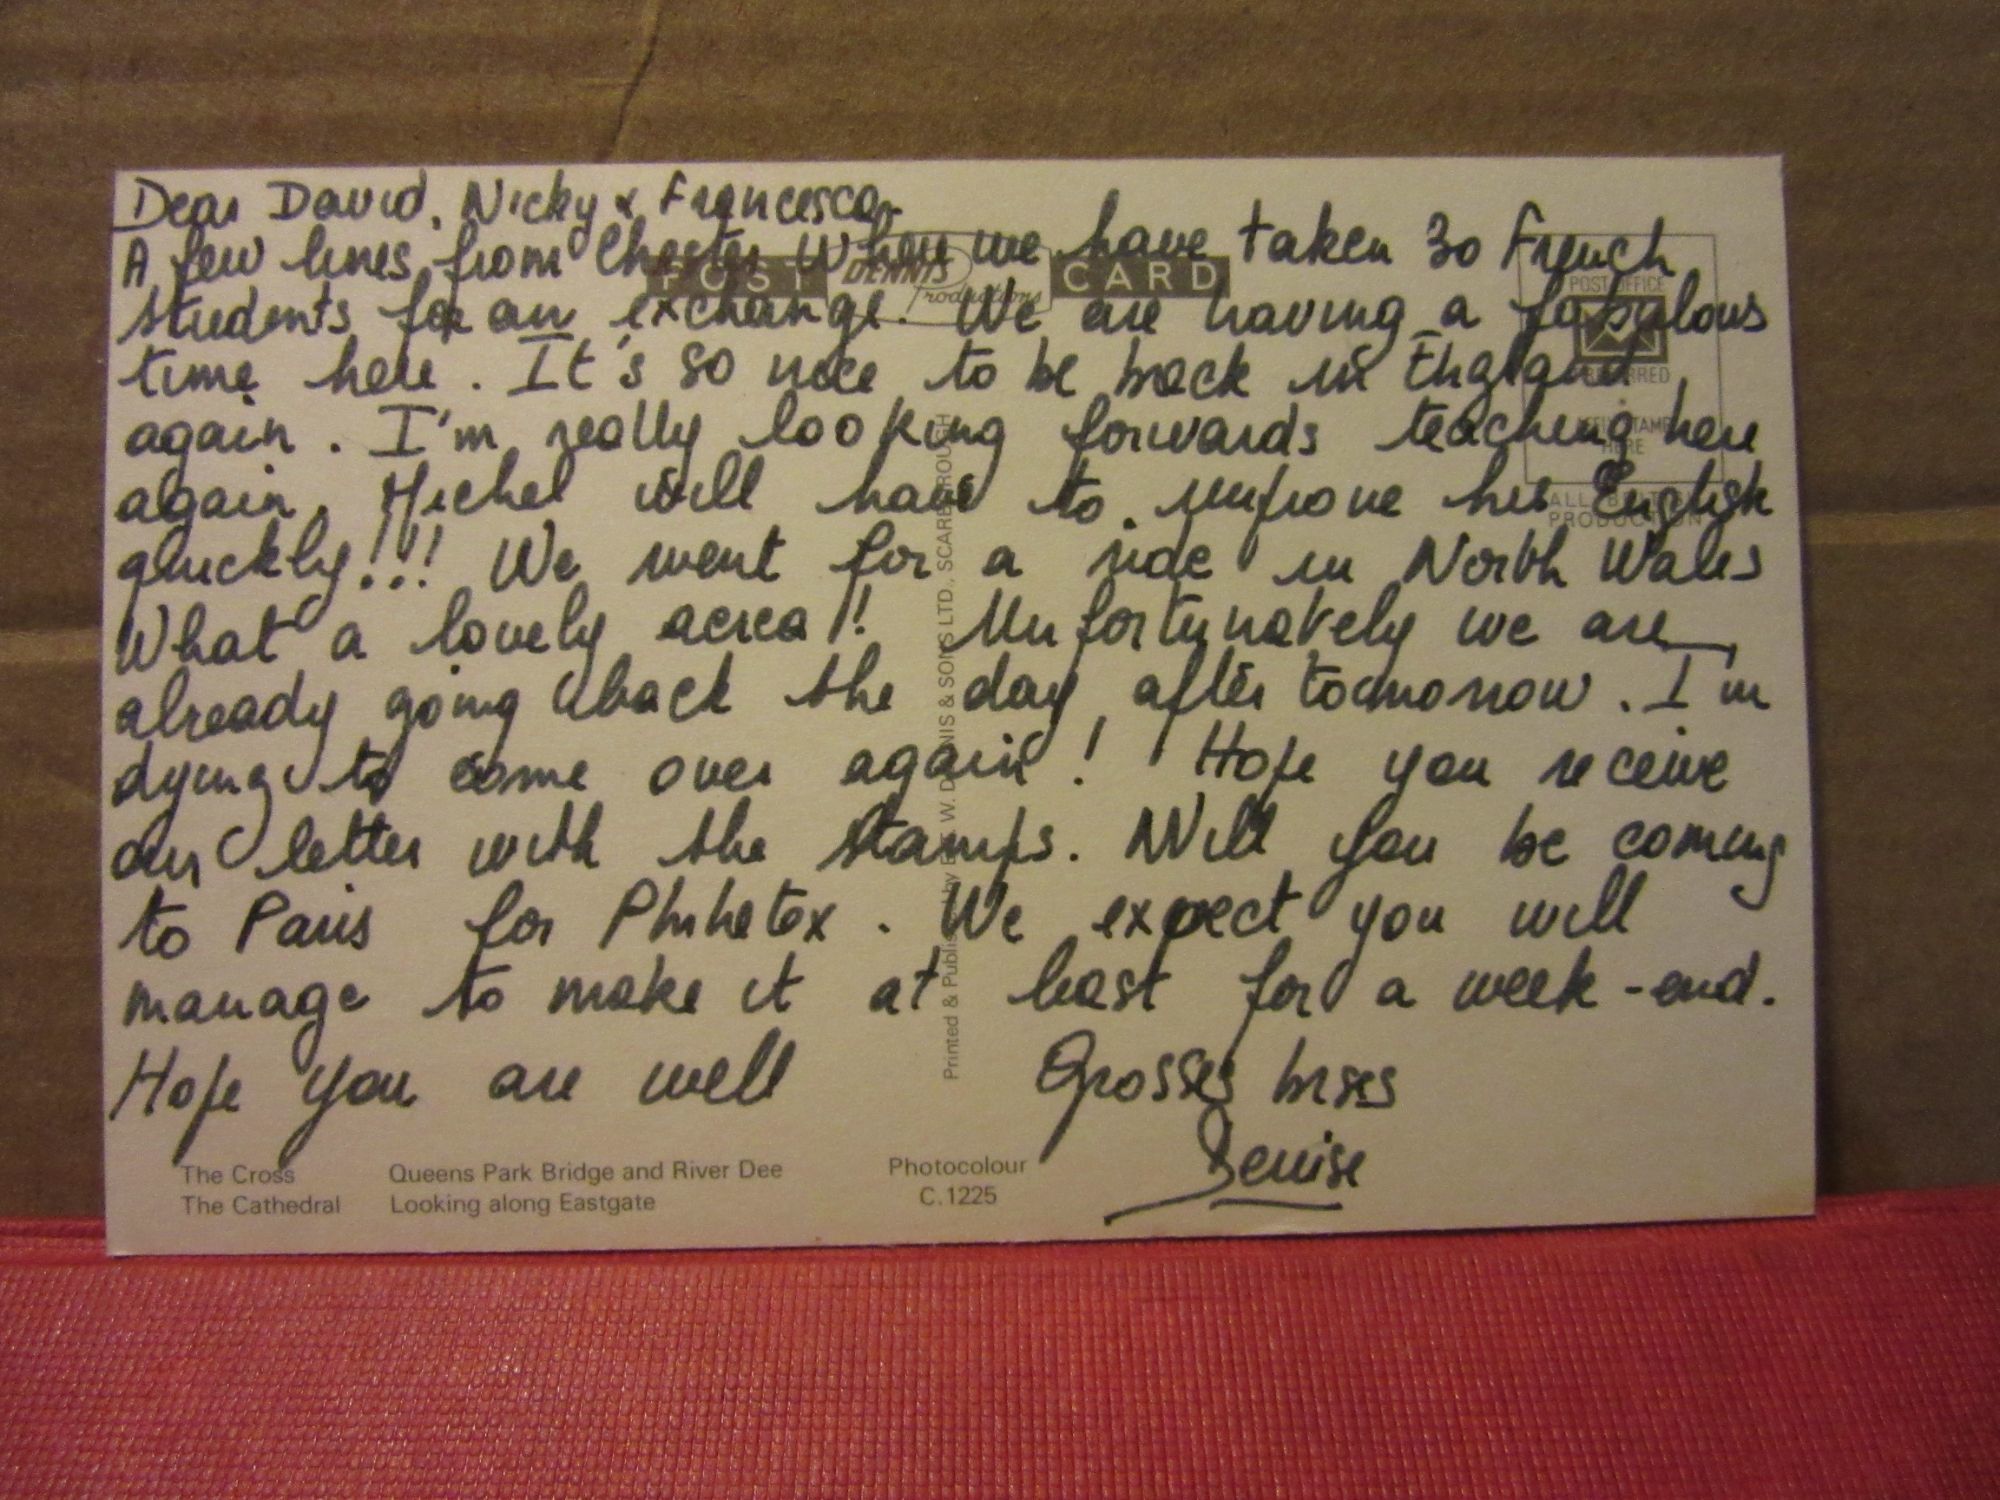 Dear David, Nicky & Francesca
A few lines from Chester where we have taken 30 French
students for an exchange. We are having a fabulous
time here. It's so nice to be back in England
again. I'm really looking forwards teaching here
again. Michel will have to improve his English
quickly!!! We went for a ride in North Wales
What a lovely aerea! Unfortunately we are
already going back the day after tomorrow. I'm
dying to come over again! Hope you receive
our letter with the stamps. Will you be coming
to Paris for Philatex. We expect you will
manage to make it at least for a week-end.
Hope you are well Grosses bises
Denise
POST CARD
DENNIS
Productions
POST OFFICE
PREFERRED
AFFIX STAMP
HERE
ALL BRITISH
PRODUCTION
Printed & Published by E.T.W. DENNIS & SONS LTD., SCARBOROUGH
The Cross Queens Park Bridge and River Dee Photocolour
The Cathedral Looking along Eastgate C.1225